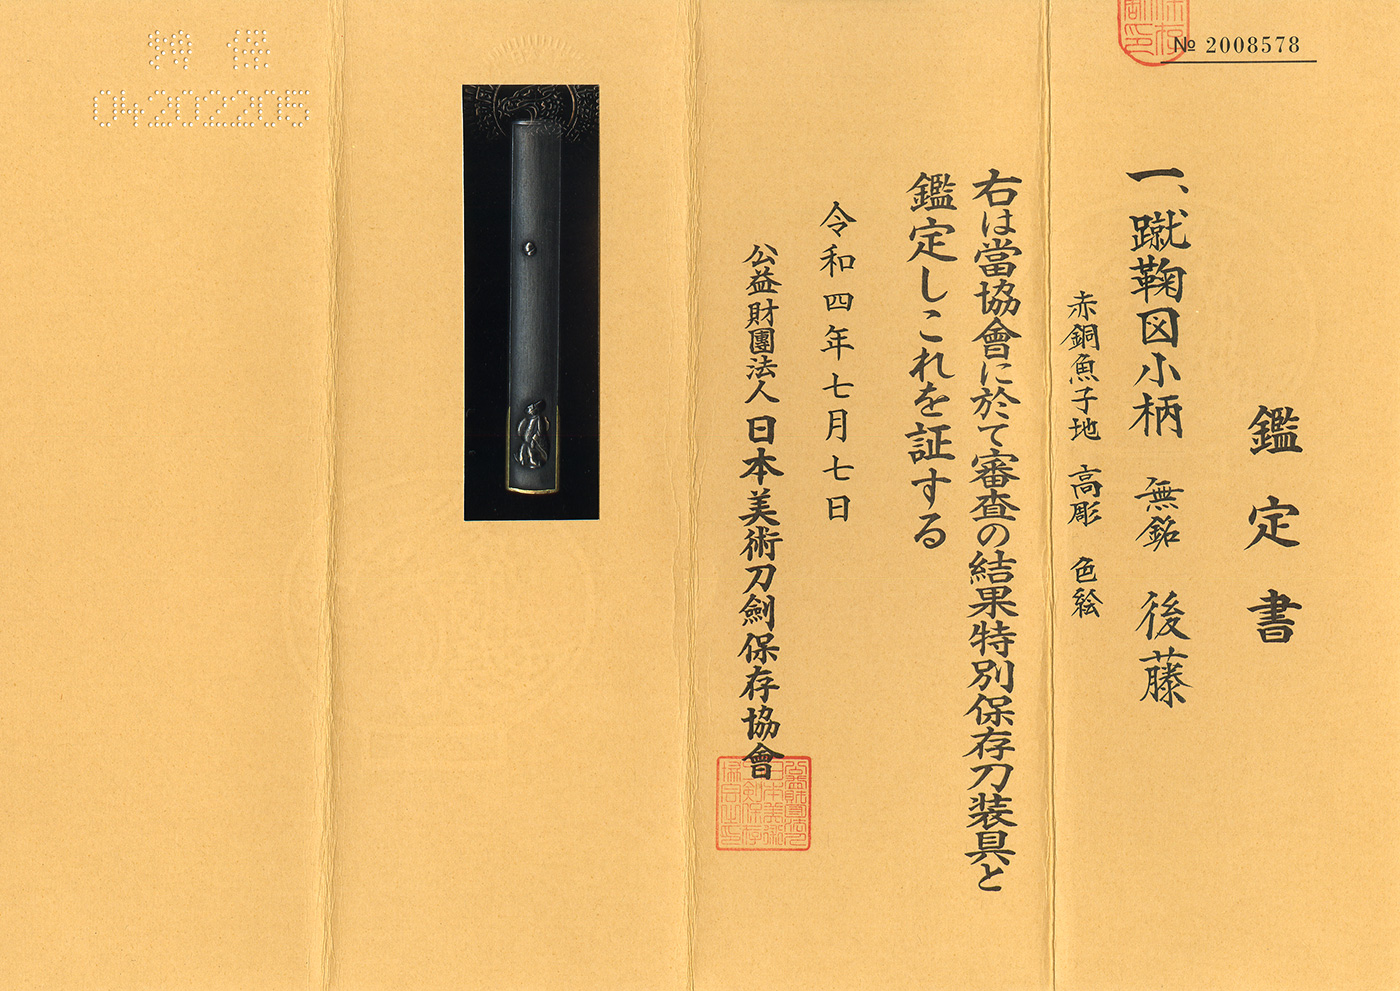 № 2008578
鑑定書
一、蹴鞠図小柄 無銘 後藤
赤銅魚子地 高彫 色絵
右は當協會に於て審査の結果特別保存刀装具と
鑑定しこれを証する
令和四年七月七日
公益財團法人 日本美術刀劍保存協會
04202205